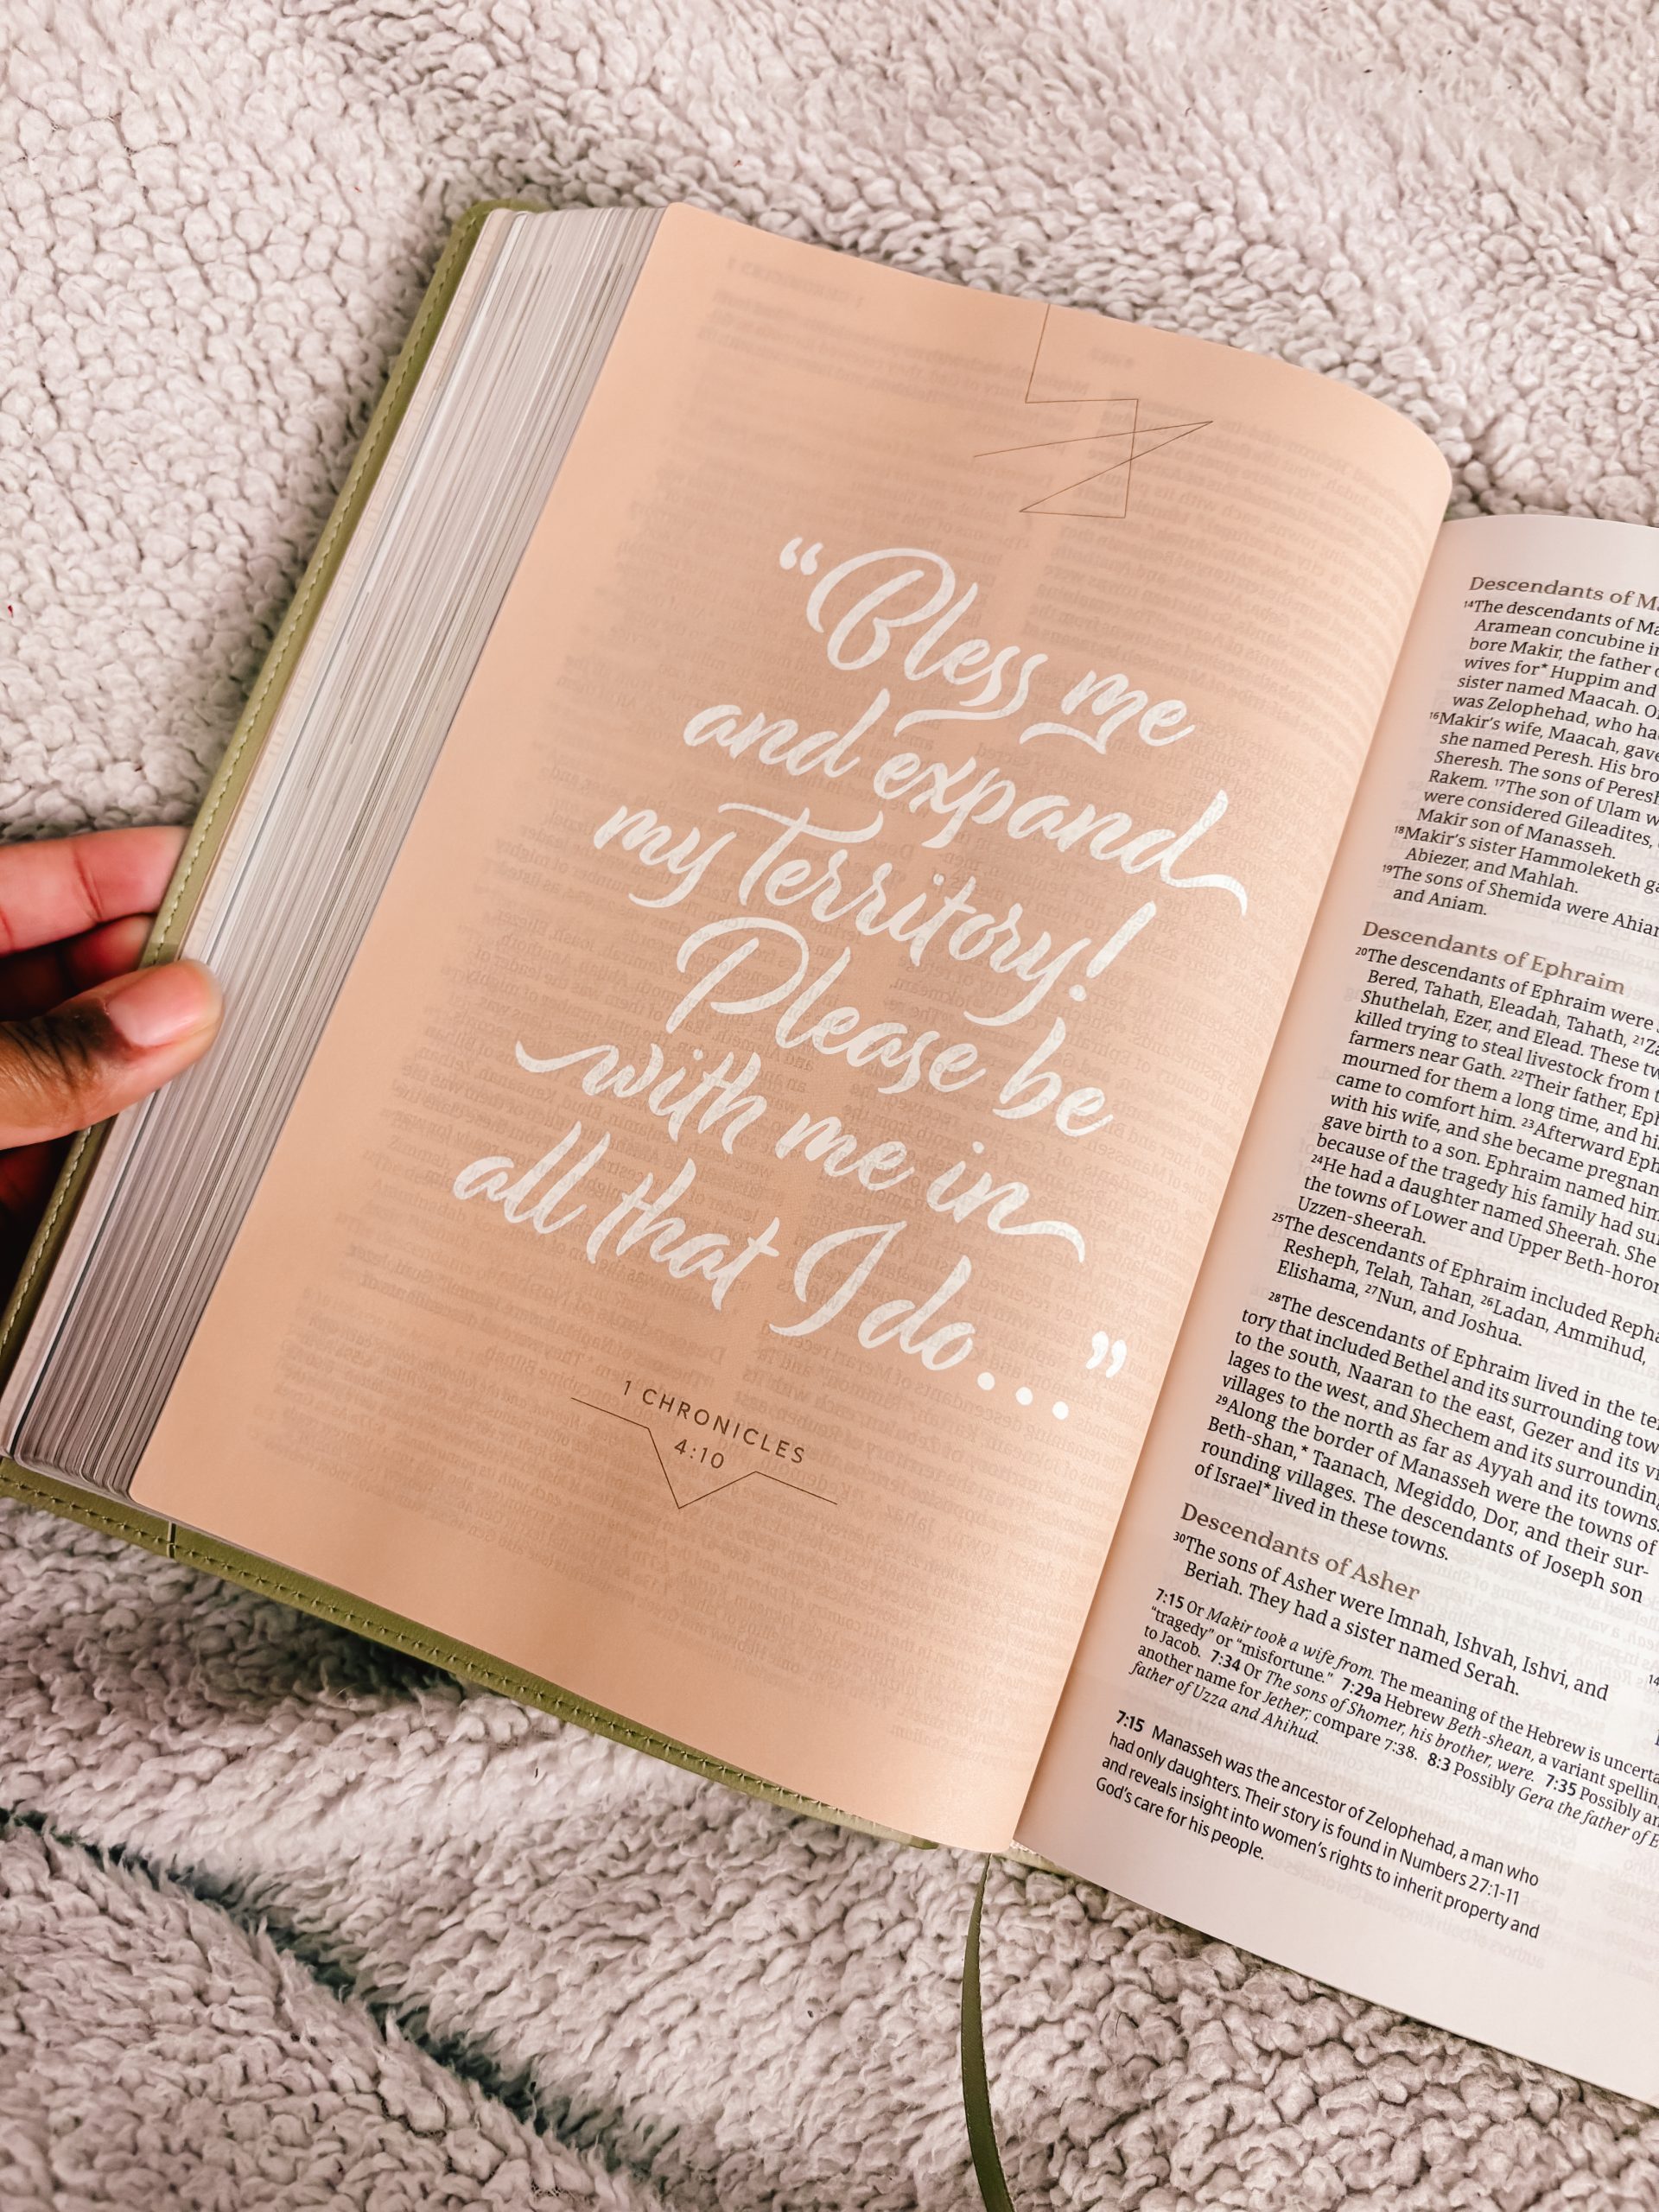 “Bless me
and expand
my Territory!
Please be
with me in
all that I do...”
1 CHRONICLES
4:10
Descendants of
14The descendants of
Aramean concubine
bore Makir, the father
wives for* Huppim and
sister named Maacah.
was Zelophehad, who
16Makir’s wife, Maacah, gave
she named Peresh. His
Sheresh. The sons of
Rakem. 17The son of Ulam
were considered Gileadites,
Makir son of Manasseh.
18Makir’s sister Hammoleketh
Abiezer, and Mahlah.
19The sons of Shemida were
and Aniam.
Descendants of Ephraim
20The descendants of Ephraim were
Bered, Tahath, Eleadah, Tahath, 21
Shuthelah, Ezer, and Elead. These
killed trying to steal livestock from
farmers near Gath. 22Their father,
mourned for them a long time, and
came to comfort him. 23Afterward
with his wife, and she became pregnant
gave birth to a son. Ephraim named him
because of the tragedy his family had
24He had a daughter named Sheerah. She
the towns of Lower and Upper
Uzzen-sheerah.
25The descendants of Ephraim included
Resheph, Telah, Tahan, 26Ladan, Ammihud,
Elishama, 27Nun, and Joshua.
28The descendants of Ephraim lived in the
tory that included Bethel and its surrounding
to the south, Naaran to the east, Gezer and its
lages to the west, and Shechem and its surrounding
villages to the north as far as Ayyah and its towns.
29Along the border of Manasseh were the towns of
Beth-shan,* Taanach, Megiddo, Dor, and their sur-
rounding villages. The descendants of Joseph son
of Israel* lived in these towns.
Descendants of Asher
30The sons of Asher were Imnah, Ishvah, Ishvi, and
Beriah. They had a sister named Serah.
7:15 Or Makir took a wife from. The meaning of the Hebrew is
“tragedy” or “misfortune.” 7:29a Hebrew Beth-shean, a variant
to Jacob. 7:34 Or The sons of Shomer, his brother, were. 7:35 Possibly
another name for Jether; compare 7:38. 8:3 Possibly Gera the father of
father of Uzza and Ahihud.
7:15 Manasseh was the ancestor of Zelophehad, a man who
had only daughters. Their story is found in Numbers 27:1-11
and reveals insight into women’s rights to inherit property and
God’s care for his people.